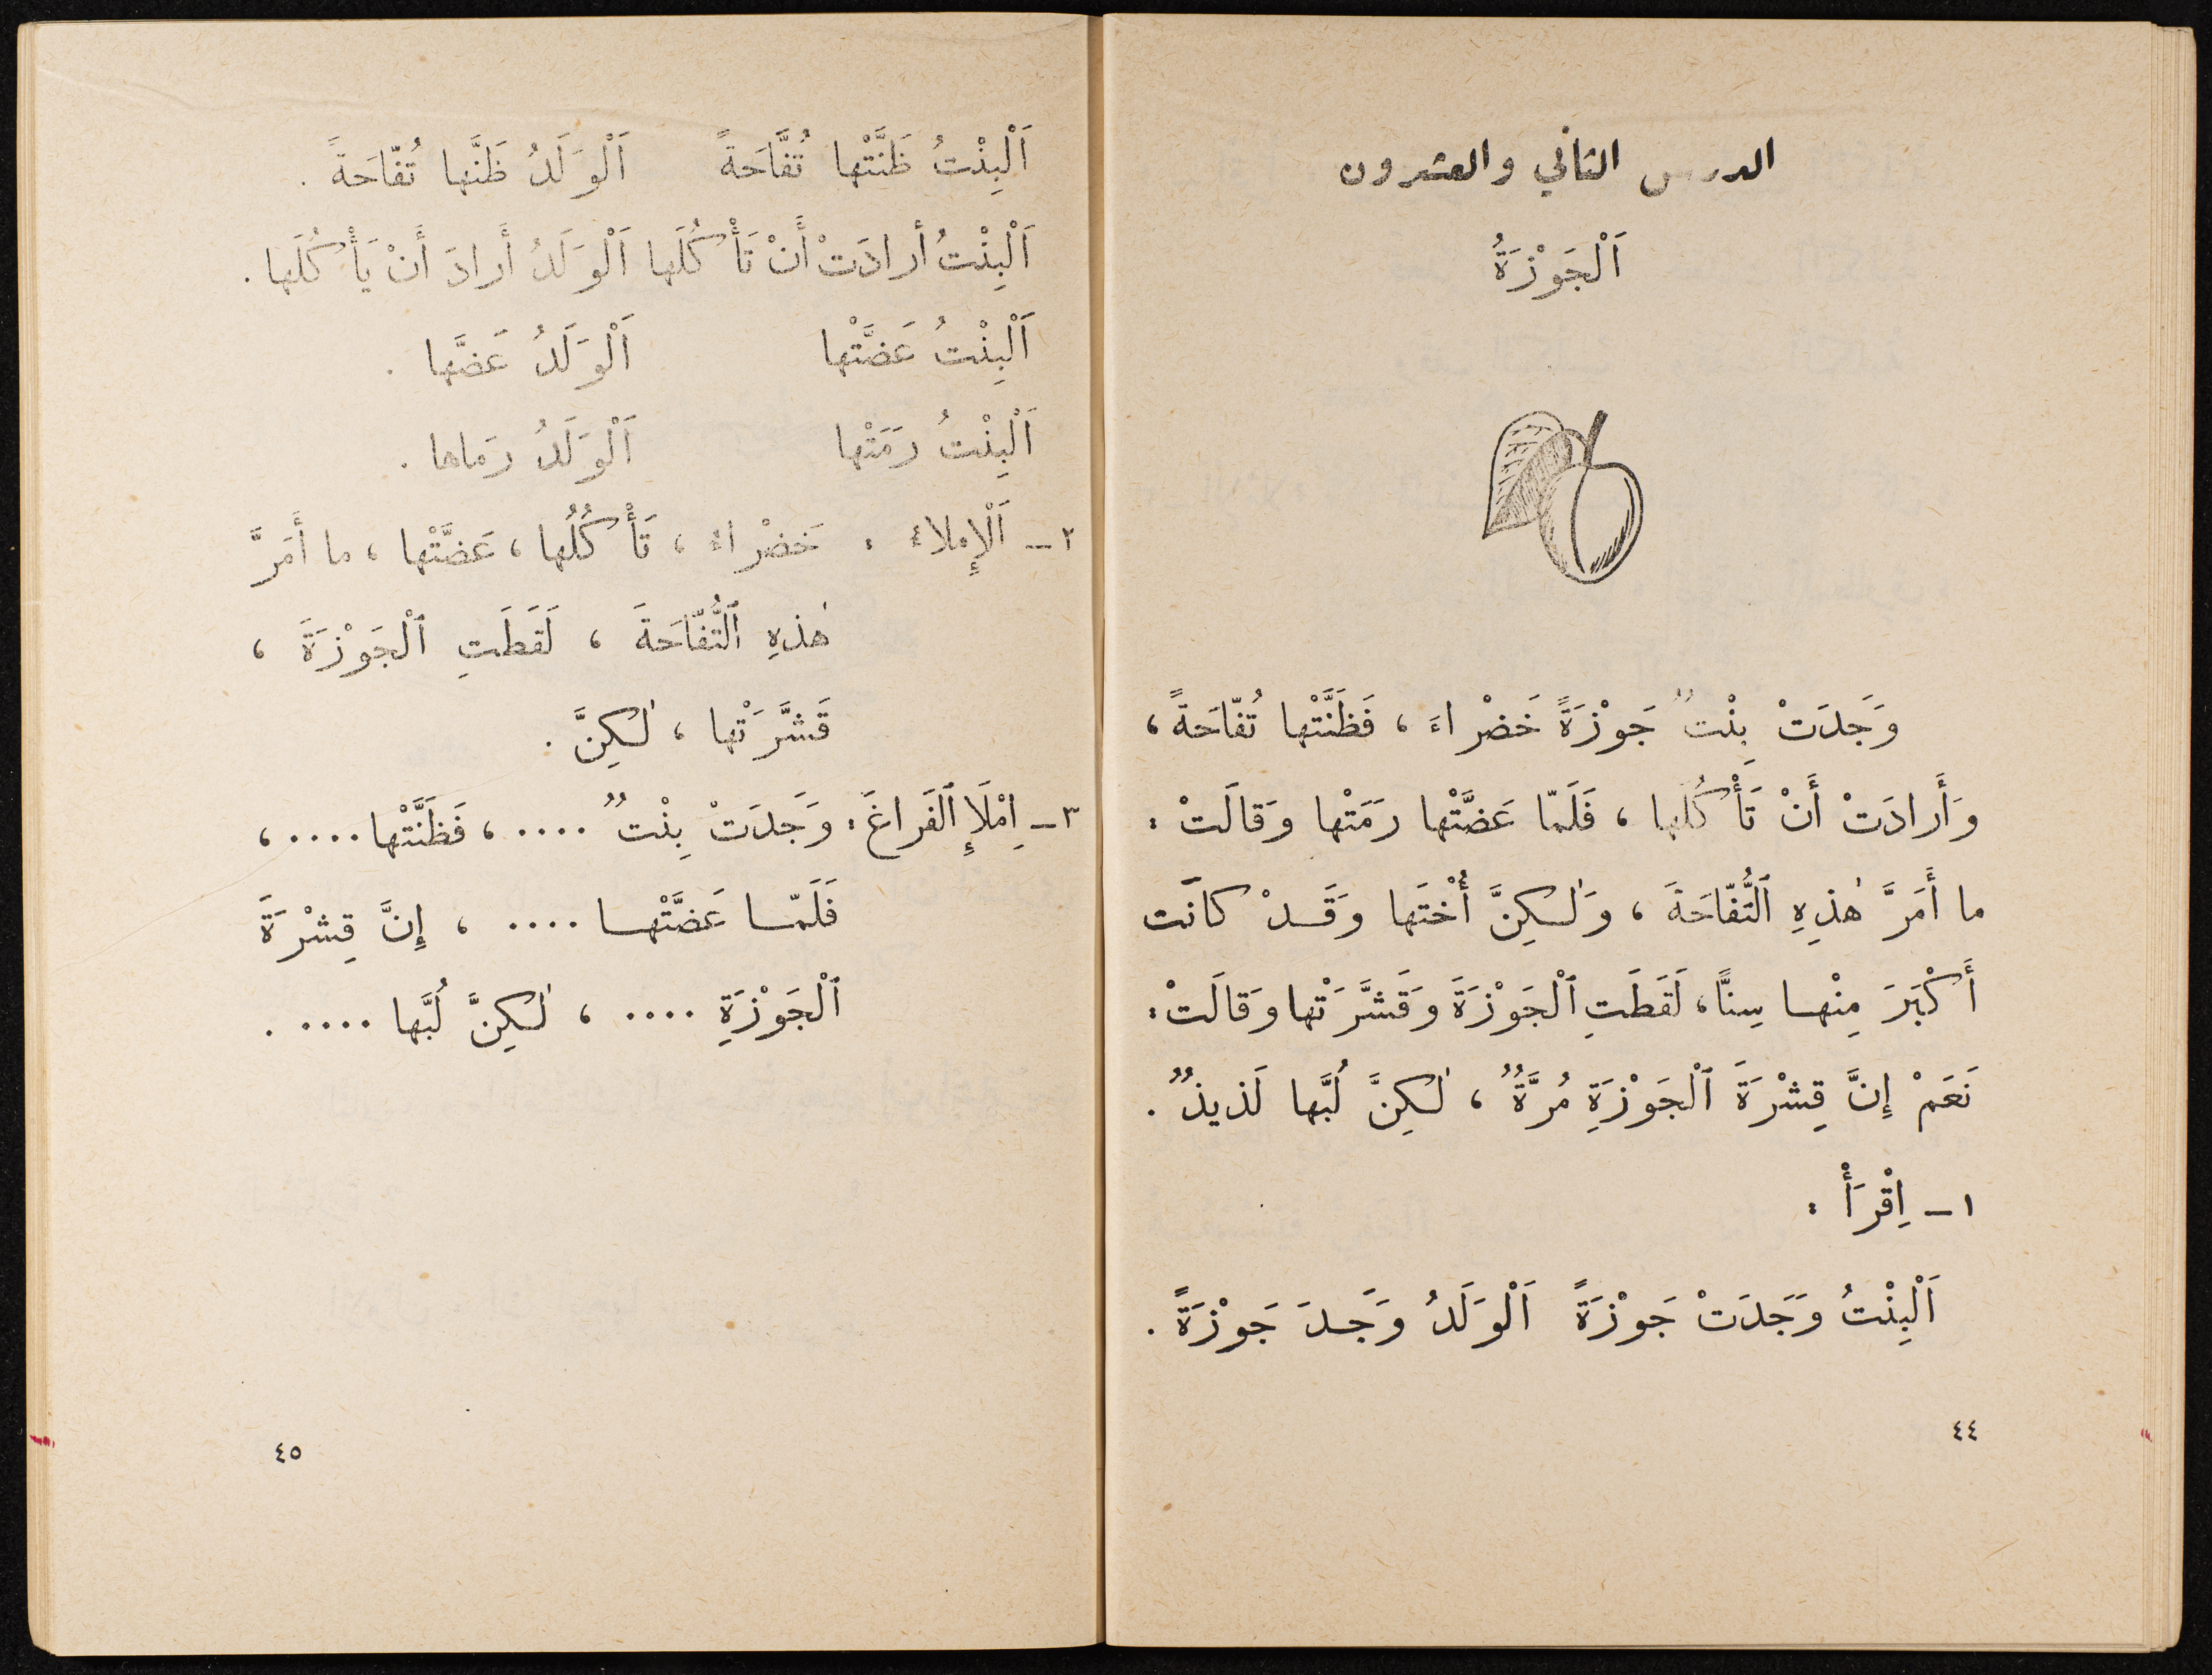 الدرس الثاني والعشرون
اَلْجَوْزَةُ
وَجَدَتْ بِنْتٌ جَوْزَةً خَضْراءَ ، فَظَنَّتْها تُفّاحَةً ،
وَأَرادَتْ أَنْ تَأْكُلَها ، فَلَمّا عَضَّتْها رَمَتْها وَقالَتْ :
ما أَمَرَّ هٰذِهِ ٱلتُّفّاحَةَ ، وَلٰكِنَّ أُخْتَها وَقَدْ كانَت
أَكْبَرَ مِنْها سِنًّا ، لَقَطَتِ ٱلْجَوْزَةَ وَقَشَّرَتْها وَقالَتْ :
نَعَمْ إِنَّ قِشْرَةَ ٱلْجَوْزَةِ مُرَّةٌ ، لٰكِنَّ لُبَّها لَذيذٌ .
١ ـ اِقْرَأْ :
اَلْبِنْتُ وَجَدَتْ جَوْزَةً اَلْوَلَدُ وَجَدَ جَوْزَةً .
٤٤
اَلْبِنْتُ ظَنَّتْها تُفَّاحَةً اَلْوَلَدُ ظَنَّها تُفّاحَةً .
اَلْبِنْتُ أرادَتْ أَنْ تَأْكُلَها اَلْوَلَدُ أَرادَ أَنْ يَأْكُلَها .
اَلْبِنْتُ عَضَّتْها اَلْوَلَدُ عَضَّها .
اَلْبِنْتُ رَمَتْها اَلْوَلَدُ رَماها .
٢ ـ اَلْإِملاء : خَضْراءَ ، تَأْكُلُها ، عَضَّتْها ، ما أَمَرَّ
هٰذِهِ ٱلتُّفّاحَةَ ، لَقَطَتِ ٱلْجَوْزَةَ ،
قَشَّرَتْها ، لٰكِنَّ .
٣ ـ اِمْلَإِ ٱلفَراغَ : وَجَدَتْ بِنْتٌ .... ، فَظَنَّتْها .... ،
فَلَمّا عَضَّتْها .... ، إِنَّ قِشْرَةَ
ٱلْجَوْزَةِ .... ، لٰكِنَّ لُبَّها .... .
٤٥